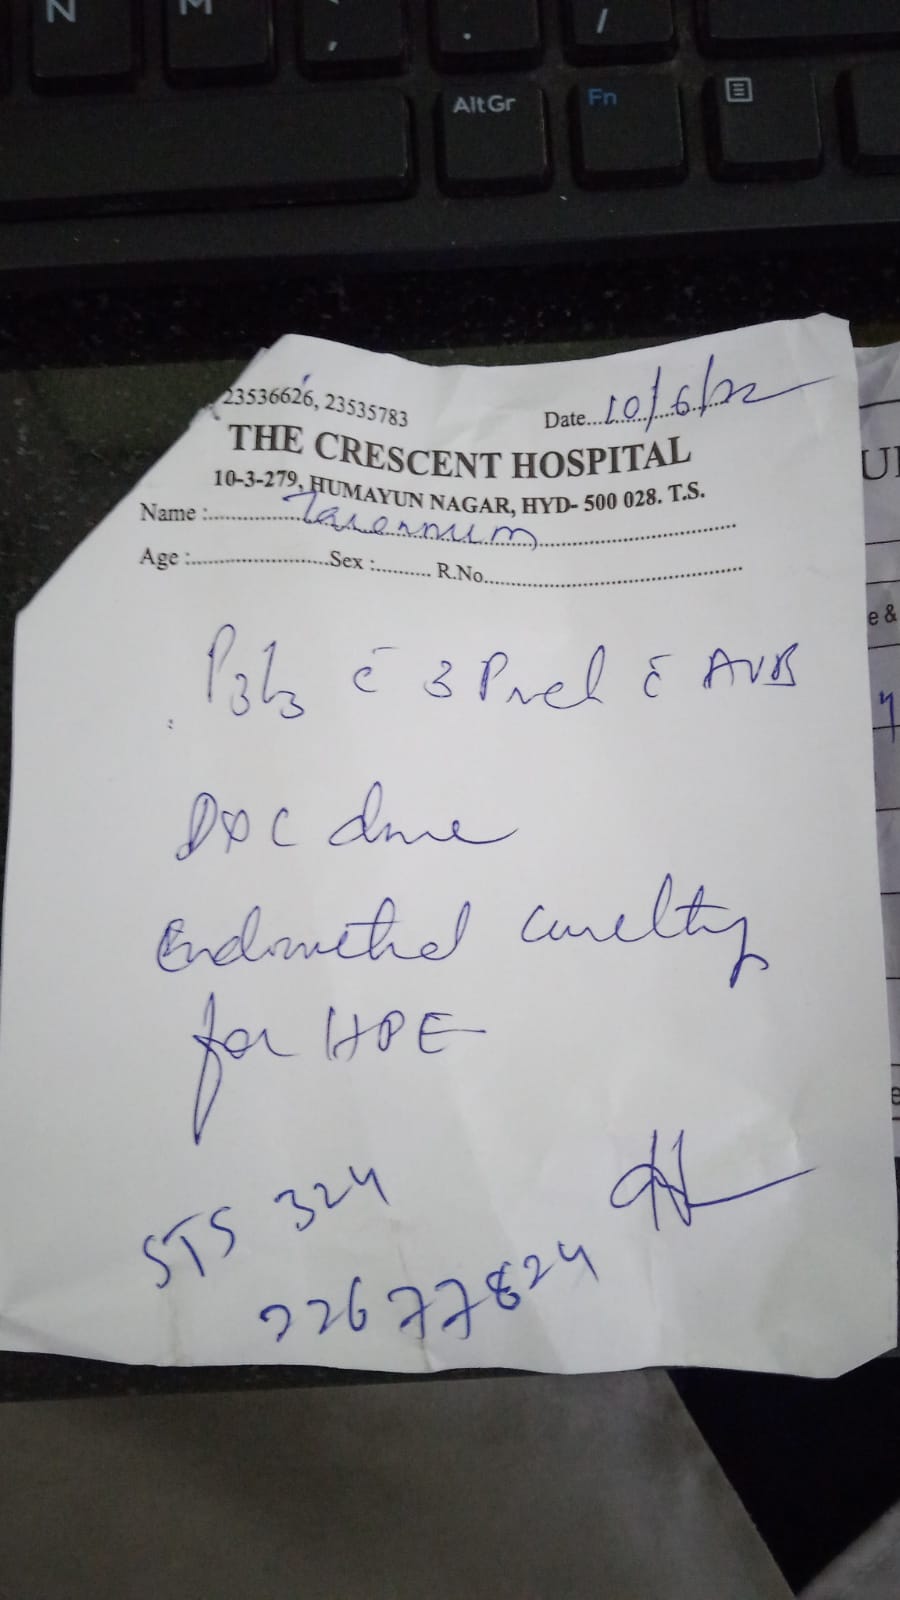 N M , . /
AltGr Fn
23536626, 23535783
Date...10/6/22
THE CRESCENT HOSPITAL
10-3-279, HUMAYUN NAGAR, HYD- 500 028. T.S.
Name :...Tarennum
Age :...Sex :... R.No...
P3L3 c̄ 3 Prel c̄ AUB
D&C done
Endometrial curetting
for HPE
STS 324
22677824